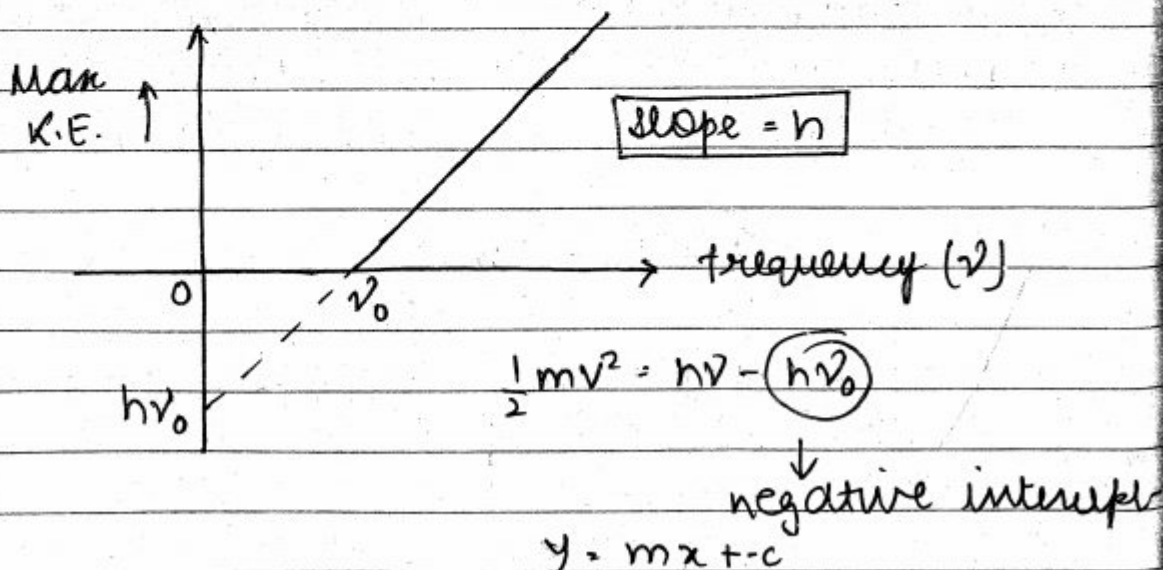 Max
K.E. ↑
slope = h
0
ν₀
frequency (ν)
hν₀
½mv² = hν - hν₀
↓
negative intercept
y = mx + -c